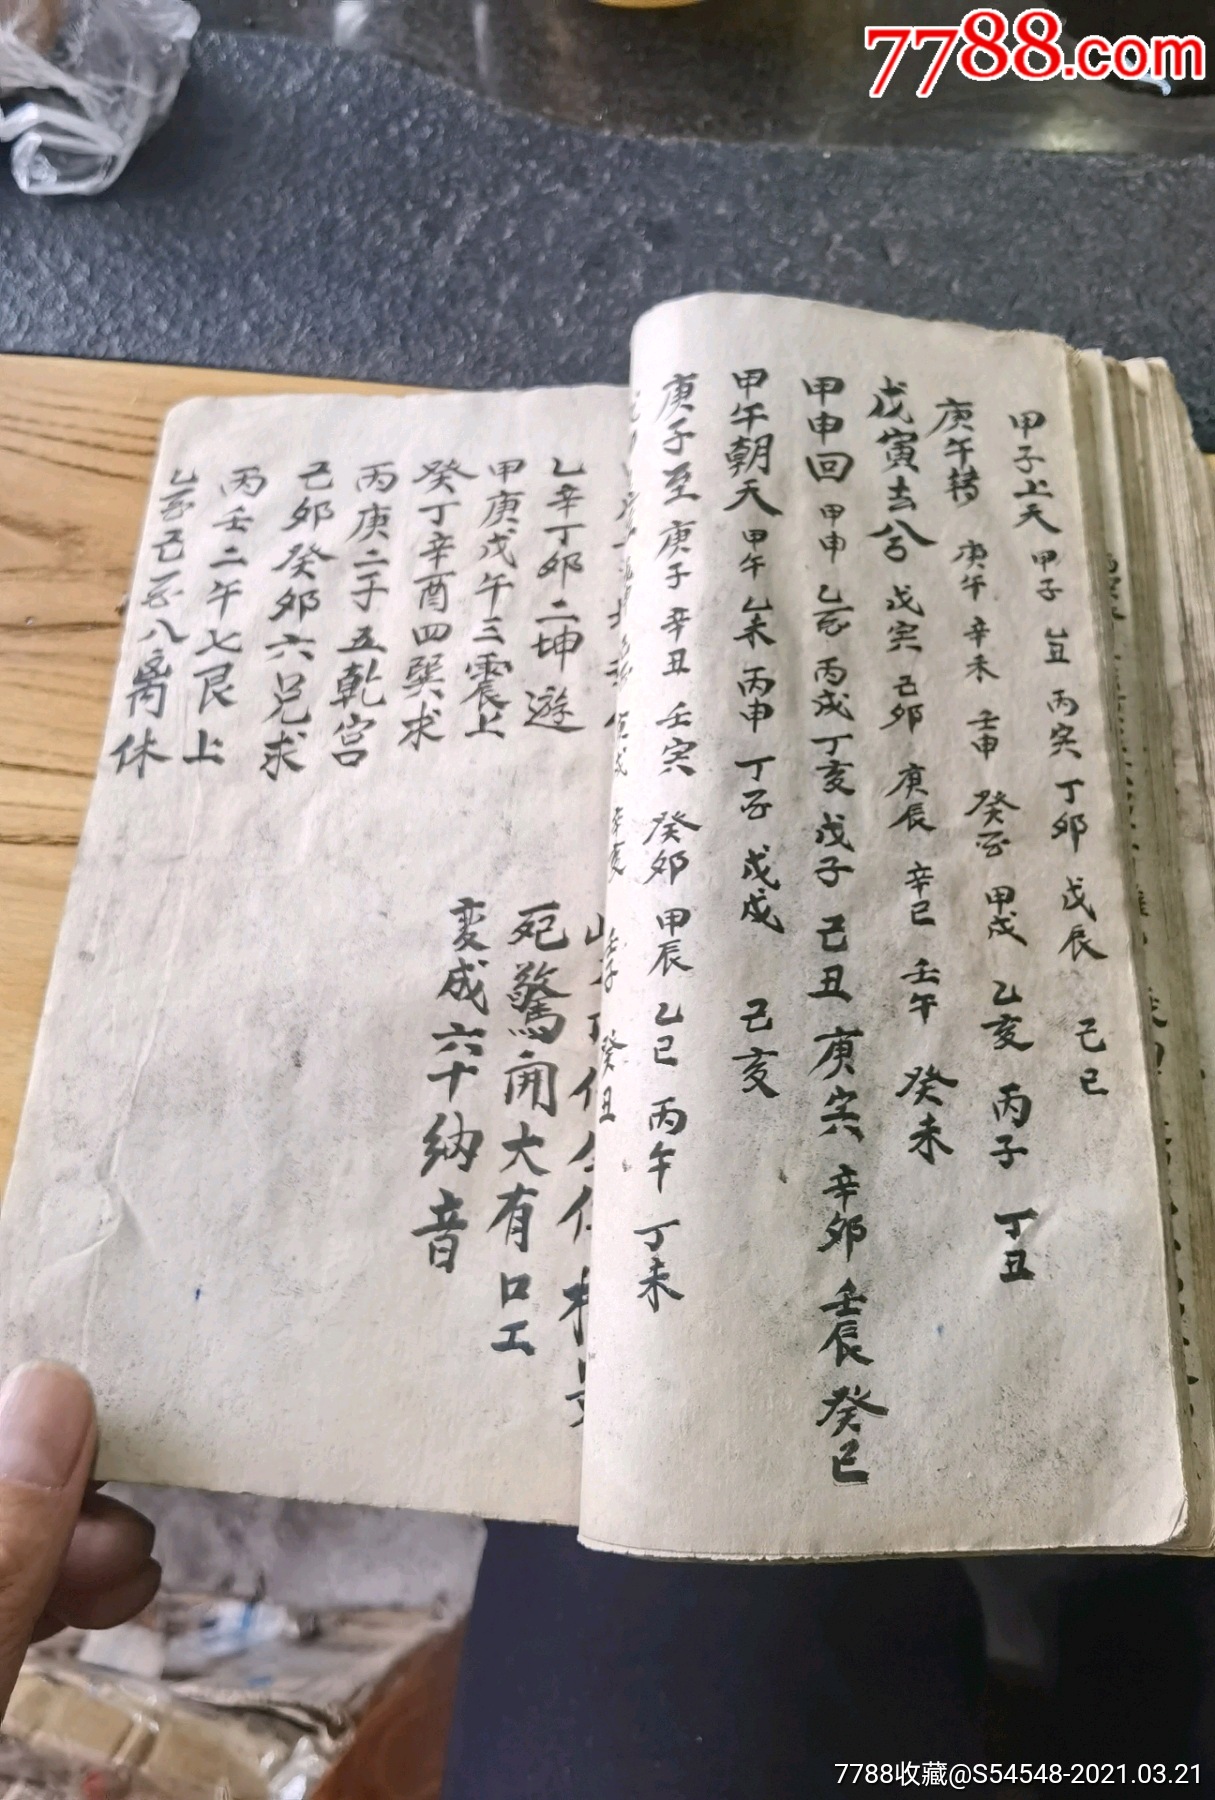 7788.com
甲子上天 甲子 乙丑 丙寅 丁卯 戊辰 己巳
庚午转 庚午 辛未 壬申 癸酉 甲戌 乙亥 丙子 丁丑
戊寅去兮 戊寅 己卯 庚辰 辛巳 壬午 癸未
甲申回 甲申 乙酉 丙戌 丁亥 戊子 己丑 庚寅 辛卯 壬辰 癸巳
甲午朝天 甲午 乙未 丙申 丁酉 戊戌 己亥
庚子至 庚子 辛丑 壬寅 癸卯 甲辰 乙巳 丙午 丁未
辛亥 壬子 癸丑
乙辛丁卯二坤遊
甲庚戊午三震上
癸丁辛酉四巽求
丙庚二子五乾宫
己卯癸卯六兑求
丙壬二午七艮上
乙酉己酉八离休
死驚開大有口工
变成六十納音
7788收藏@S54548-2021.03.21